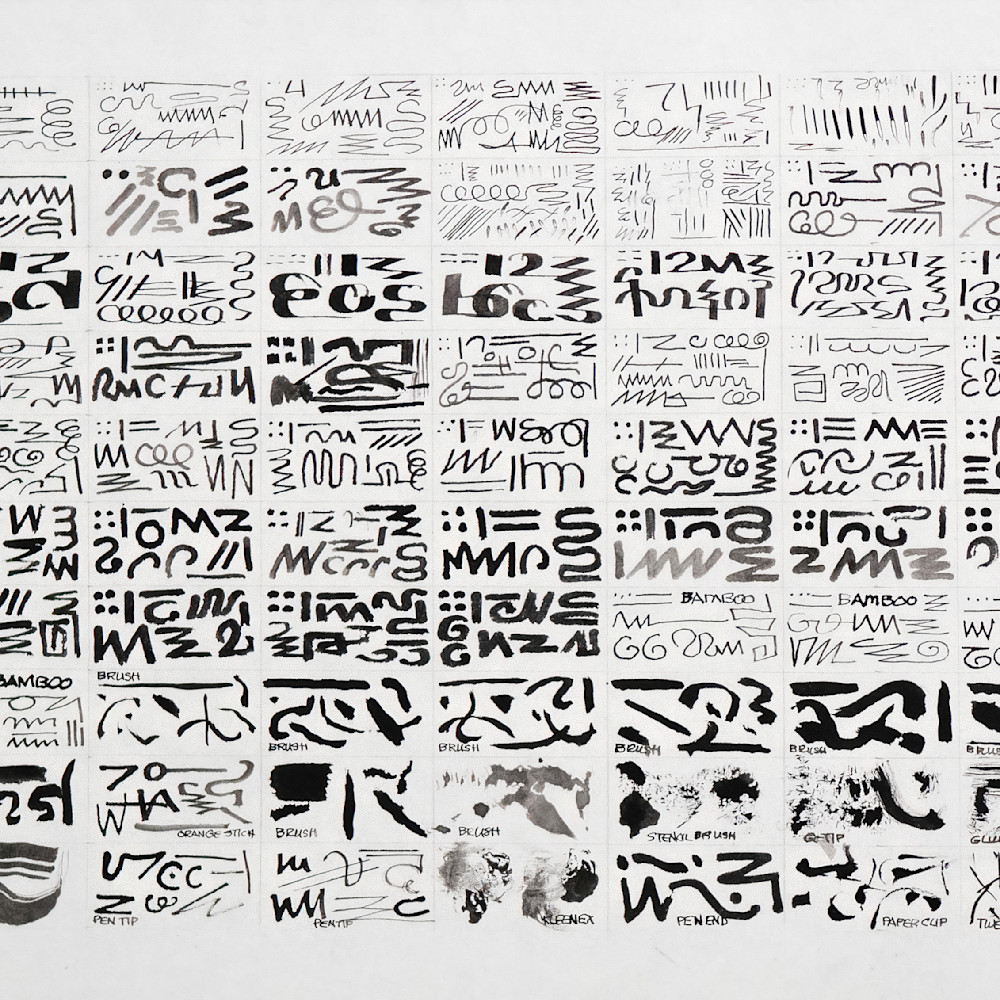 BAMBOO BAMBOO
BAMBOO BRUSH
BRUSH BRUSH BRUSH BRUSH
ORANGE STICK BRUSH BRUSH STENCIL BRUSH Q-TIP
PEN TIP PEN TIP KLEENEX PEN END PAPER CLIP